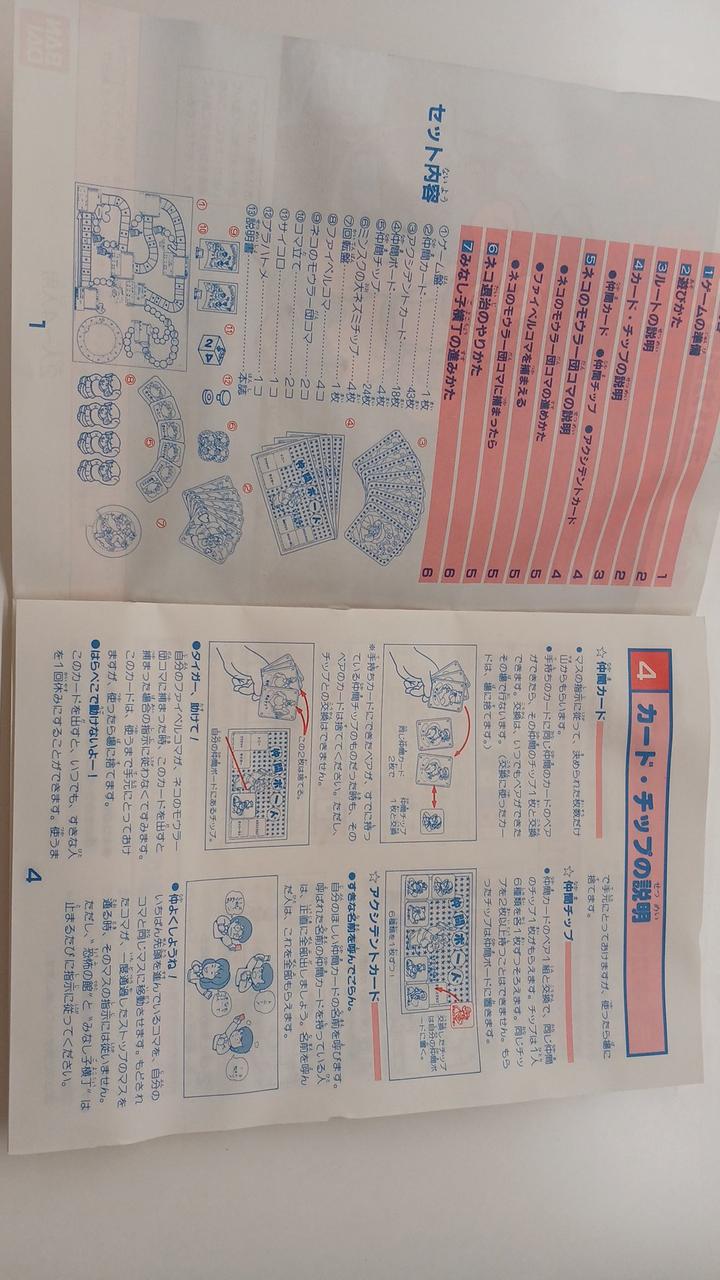 1 ゲームの準備 1
2 遊びかた 2
3 ルートの説明 2
4 カード・チップの説明 3
●仲間カード ●仲間チップ ●アクシデントカード
5 ネコのモウラー団コマの説明 4
●ネコのモウラー団コマの進めかた 4
●ファイベルコマを捕まえる 5
●ネコのモウラー団コマに捕まったら 5
6 ネコ退治のやりかた 5
7 みなし子横丁の進みかた 6
セット内容
①ゲーム盤 1枚
②仲間カード 43枚
③アクシデントカード 18枚
④仲間ボード 4枚
⑤仲間チップ 24枚
⑥ミンスクの大ネズミチップ 1枚
⑦回転盤 1枚
⑧ファイベルコマ 4コ
⑨ネコのモウラー団コマ 2コ
⑩コマ立て 2コ
⑪サイコロ 1コ
⑫プラハトメ 1コ
⑬説明書 本誌
仲間ボード
1
4 カード・チップの説明
☆仲間カード
●マスの指示に従って、決められた枚数だけ
山からもらいます。
●手持ちのカードに同じ仲間のカードのペア
ができたら、その仲間のチップ1枚と交換
できます。交換は、いつでもペアができた
その場で行ないます。（交換に使ったカー
ドは、場に捨てます。）
同じ仲間カード
2枚で
仲間チップ
1枚と交換
※手持ちカードにできたペアが、すでに持っ
ている仲間チップのものだった時も、その
ペアのカードは捨ててください。ただし、
チップとの交換はできません。
この2枚は捨てる。
仲間ボード
自分の仲間ボードにあるチップ。
●タイガー、助けて！
自分のファイベルコマが、ネコのモウラー
団コマに捕まった時、このカードを出すと
捕まった場合の指示に従わなくてすみます。
このカードは、使うまで手元にとっておけ
ますが、使ったら場に捨てます。
●はらぺこで動けないよー！
このカードを出すと、いつでも、すきな人
を1回休みにすることができます。使うま
で手元にとっておけますが、使ったら場に
捨てます。
☆仲間チップ
●仲間カードのペア1組と交換で、同じ仲間
のチップ1枚がもらえます。チップは1人
6種類を各1枚ずつそろえます。同じチッ
プを2枚以上持つことはできません。もら
ったチップは仲間ボードに置きます。
仲間ボード
6種類を1枚ずつ！
交換したチップ
は自分の仲間ボ
ードに置く。
☆アクシデントカード
●すきな名前を呼んでごらん。
自分のほしい仲間カードの名前を呼びます。
呼ばれた名前の仲間カードを持っている人
は、正直に全部出しましょう。名前を呼ん
だ人は、これを全部もらえます。
●仲よくしようね！
いちばん先頭を進んでいるコマを、自分の
コマと同じマスに移動させます。もどされ
たコマが、一度通過したストップのマスを
通る時、そのマスの指示には従いません。
ただし、“恐怖の館”と“みなし子横丁”は
止まるたびに指示に従ってください。
4